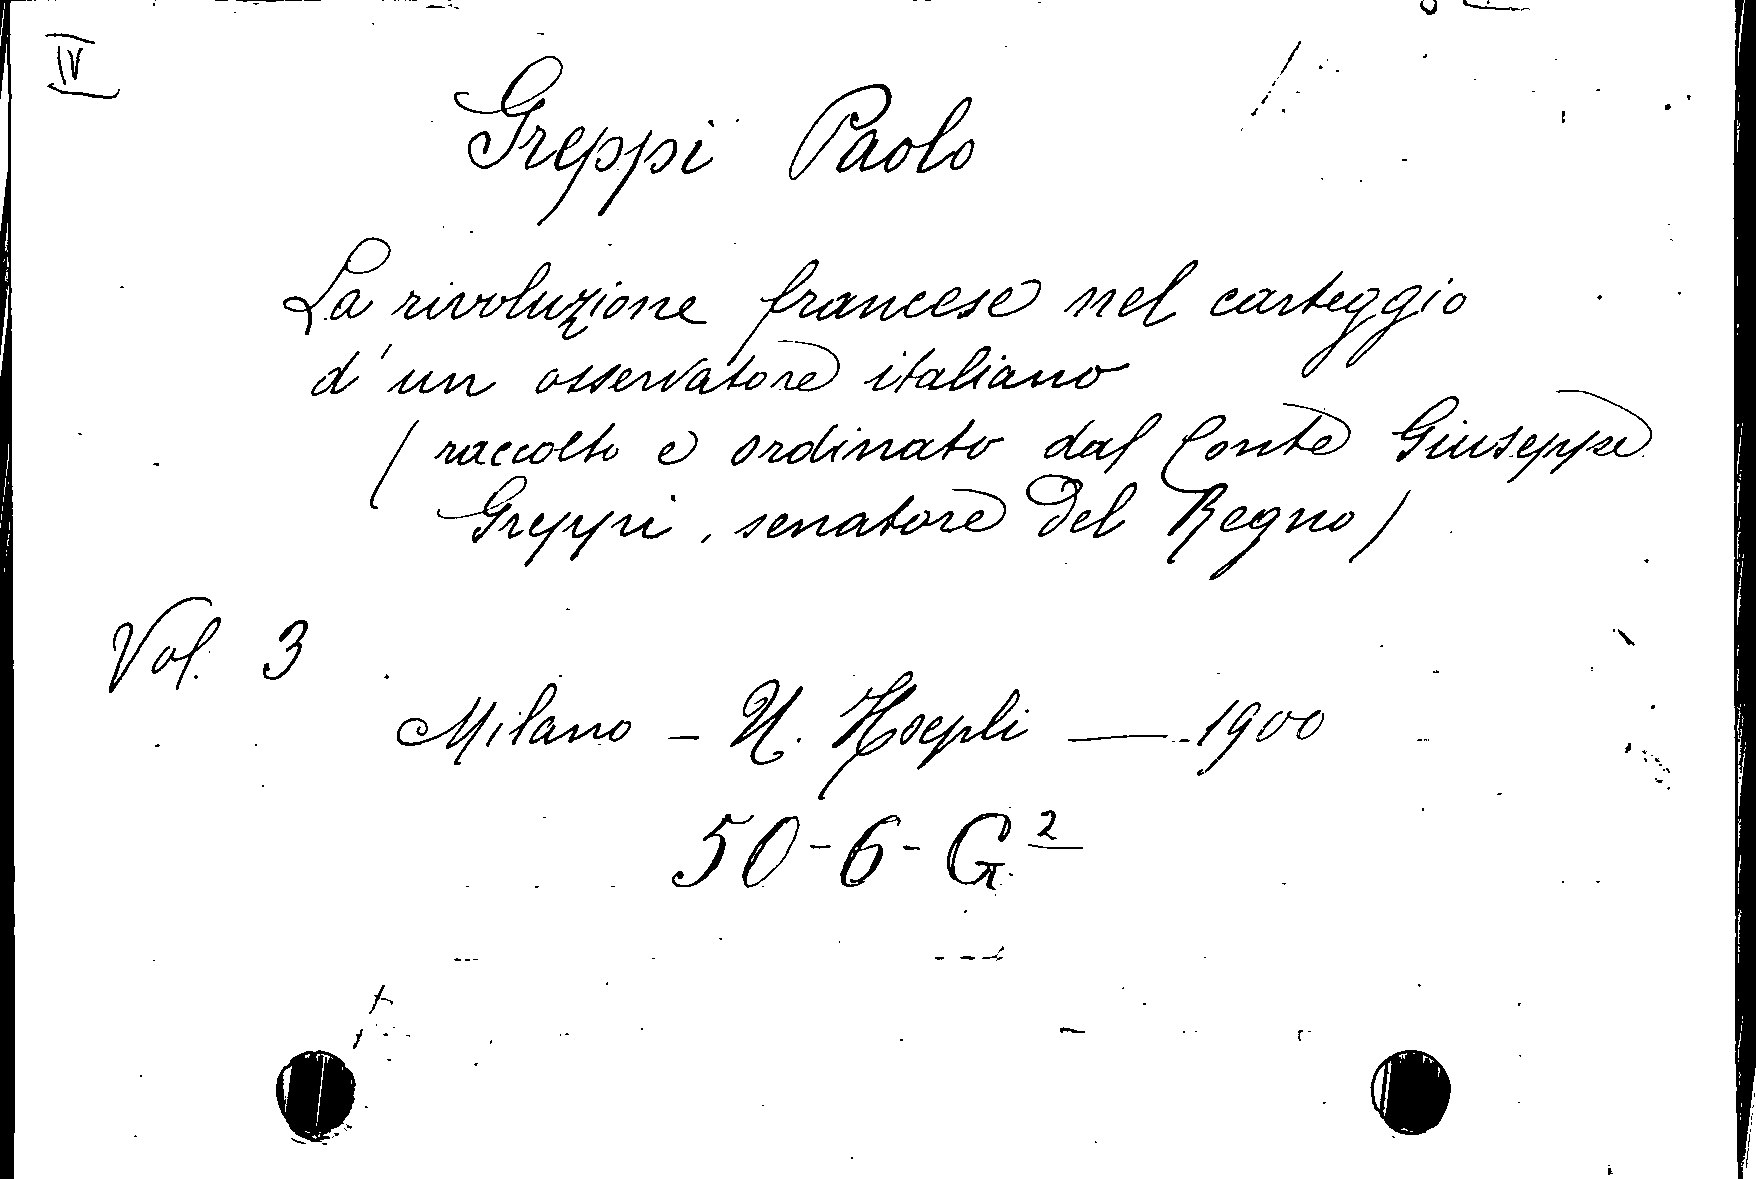 IV
Greppi Paolo
La rivoluzione francese nel carteggio
d'un osservatore italiano
(raccolto e ordinato dal Conte Giuseppe
Greppi, senatore del Regno)
Vol. 3
Milano - U. Hoepli — 1900
50-6-G²